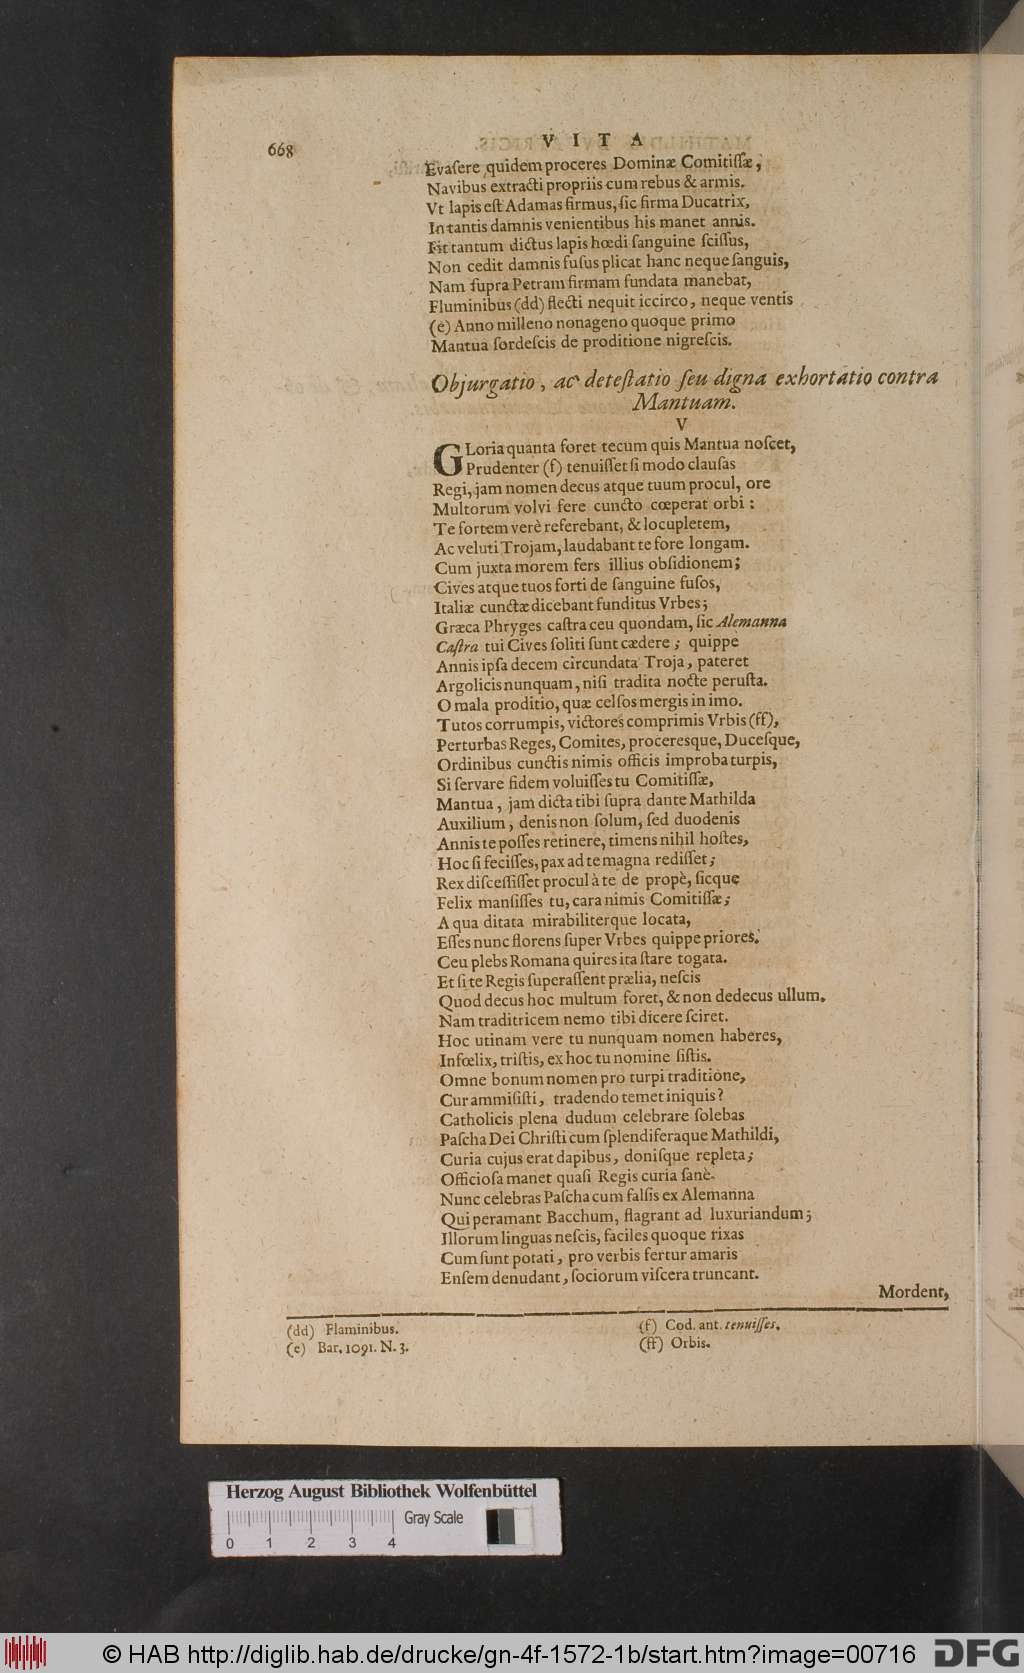 668
VITA
Evaſere quidem proceres Dominæ Comitiſſæ,
Navibus extracti propriis cum rebus & armis.
Vt lapis eſt Adamas firmus, ſic firma Ducatrix,
In tantis damnis venientibus his manet annis.
Fit tantum dictus lapis hœdi ſanguine ſciſſus,
Non cedit damnis fuſus plicat hanc neque ſanguis,
Nam ſupra Petram firmam fundata manebat,
Fluminibus (dd) flecti nequit iccirco, neque ventis
(e) Anno milleno nonageno quoque primo
Mantua ſordeſcis de proditione nigreſcis.
Objurgatio, ac deteſtatio ſeu digna exhortatio contra
Mantuam.
V
GLoria quanta foret tecum quis Mantua noſcet,
Prudenter (f) tenuiſſet ſi modo clauſas
Regi, jam nomen decus atque tuum procul, ore
Multorum volvi fere cuncto cœperat orbi:
Te fortem verè referebant, & locupletem,
Ac veluti Trojam, laudabant te fore longam.
Cum juxta morem fers illius obſidionem;
Cives atque tuos forti de ſanguine fuſos,
Italiæ cunctæ dicebant funditus Vrbes;
Græca Phryges caſtra ceu quondam, ſic Alemanna
Caſtra tui Cives ſoliti ſunt cædere; quippe
Annis ipſa decem circundata Troja, pateret
Argolicis nunquam, niſi tradita nocte peruſta.
O mala proditio, quæ celſos mergis in imo.
Tutos corrumpis, victores comprimis Vrbis (ff),
Perturbas Reges, Comites, procereſque, Duceſque,
Ordinibus cunctis nimis officis improba turpis,
Si ſervare fidem voluiſſes tu Comitiſſæ,
Mantua, jam dicta tibi ſupra dante Mathilda
Auxilium, denis non ſolum, ſed duodenis
Annis te poſſes retinere, timens nihil hoſtes,
Hoc ſi feciſſes, pax ad te magna rediſſet;
Rex diſceſſiſſet procul à te de propè, ſicque
Felix manſiſſes tu, cara nimis Comitiſſæ;
A qua ditata mirabiliterque locata,
Eſſes nunc florens ſuper Vrbes quippe priores.
Ceu plebs Romana quires ita ſtare togata.
Et ſi te Regis ſuperaſſent prælia, neſcis
Quod decus hoc multum foret, & non dedecus ullum.
Nam traditricem nemo tibi dicere ſciret.
Hoc utinam vere tu nunquam nomen haberes,
Infœlix, triſtis, ex hoc tu nomine ſiſtis.
Omne bonum nomen pro turpi traditione,
Cur ammiſiſti, tradendo temet iniquis?
Catholicis plena dudum celebrare ſolebas
Paſcha Dei Chriſti cum ſplendiferaque Mathildi,
Curia cujus erat dapibus, doniſque repleta;
Officioſa manet quaſi Regis curia ſanè.
Nunc celebras Paſcha cum falſis ex Alemanna
Qui peramant Bacchum, flagrant ad luxuriandum;
Illorum linguas neſcis, faciles quoque rixas
Cum ſunt potati, pro verbis fertur amaris
Enſem denudant, ſociorum viſcera truncant.
Mordent,
(dd) Flaminibus.
(e) Bar. 1091. N. 3.
(f) Cod. ant. tenuiſſes.
(ff) Orbis.
Herzog August Bibliothek Wolfenbüttel
Gray Scale
0 1 2 3 4
© HAB http://diglib.hab.de/drucke/gn-4f-1572-1b/start.htm?image=00716
DFG